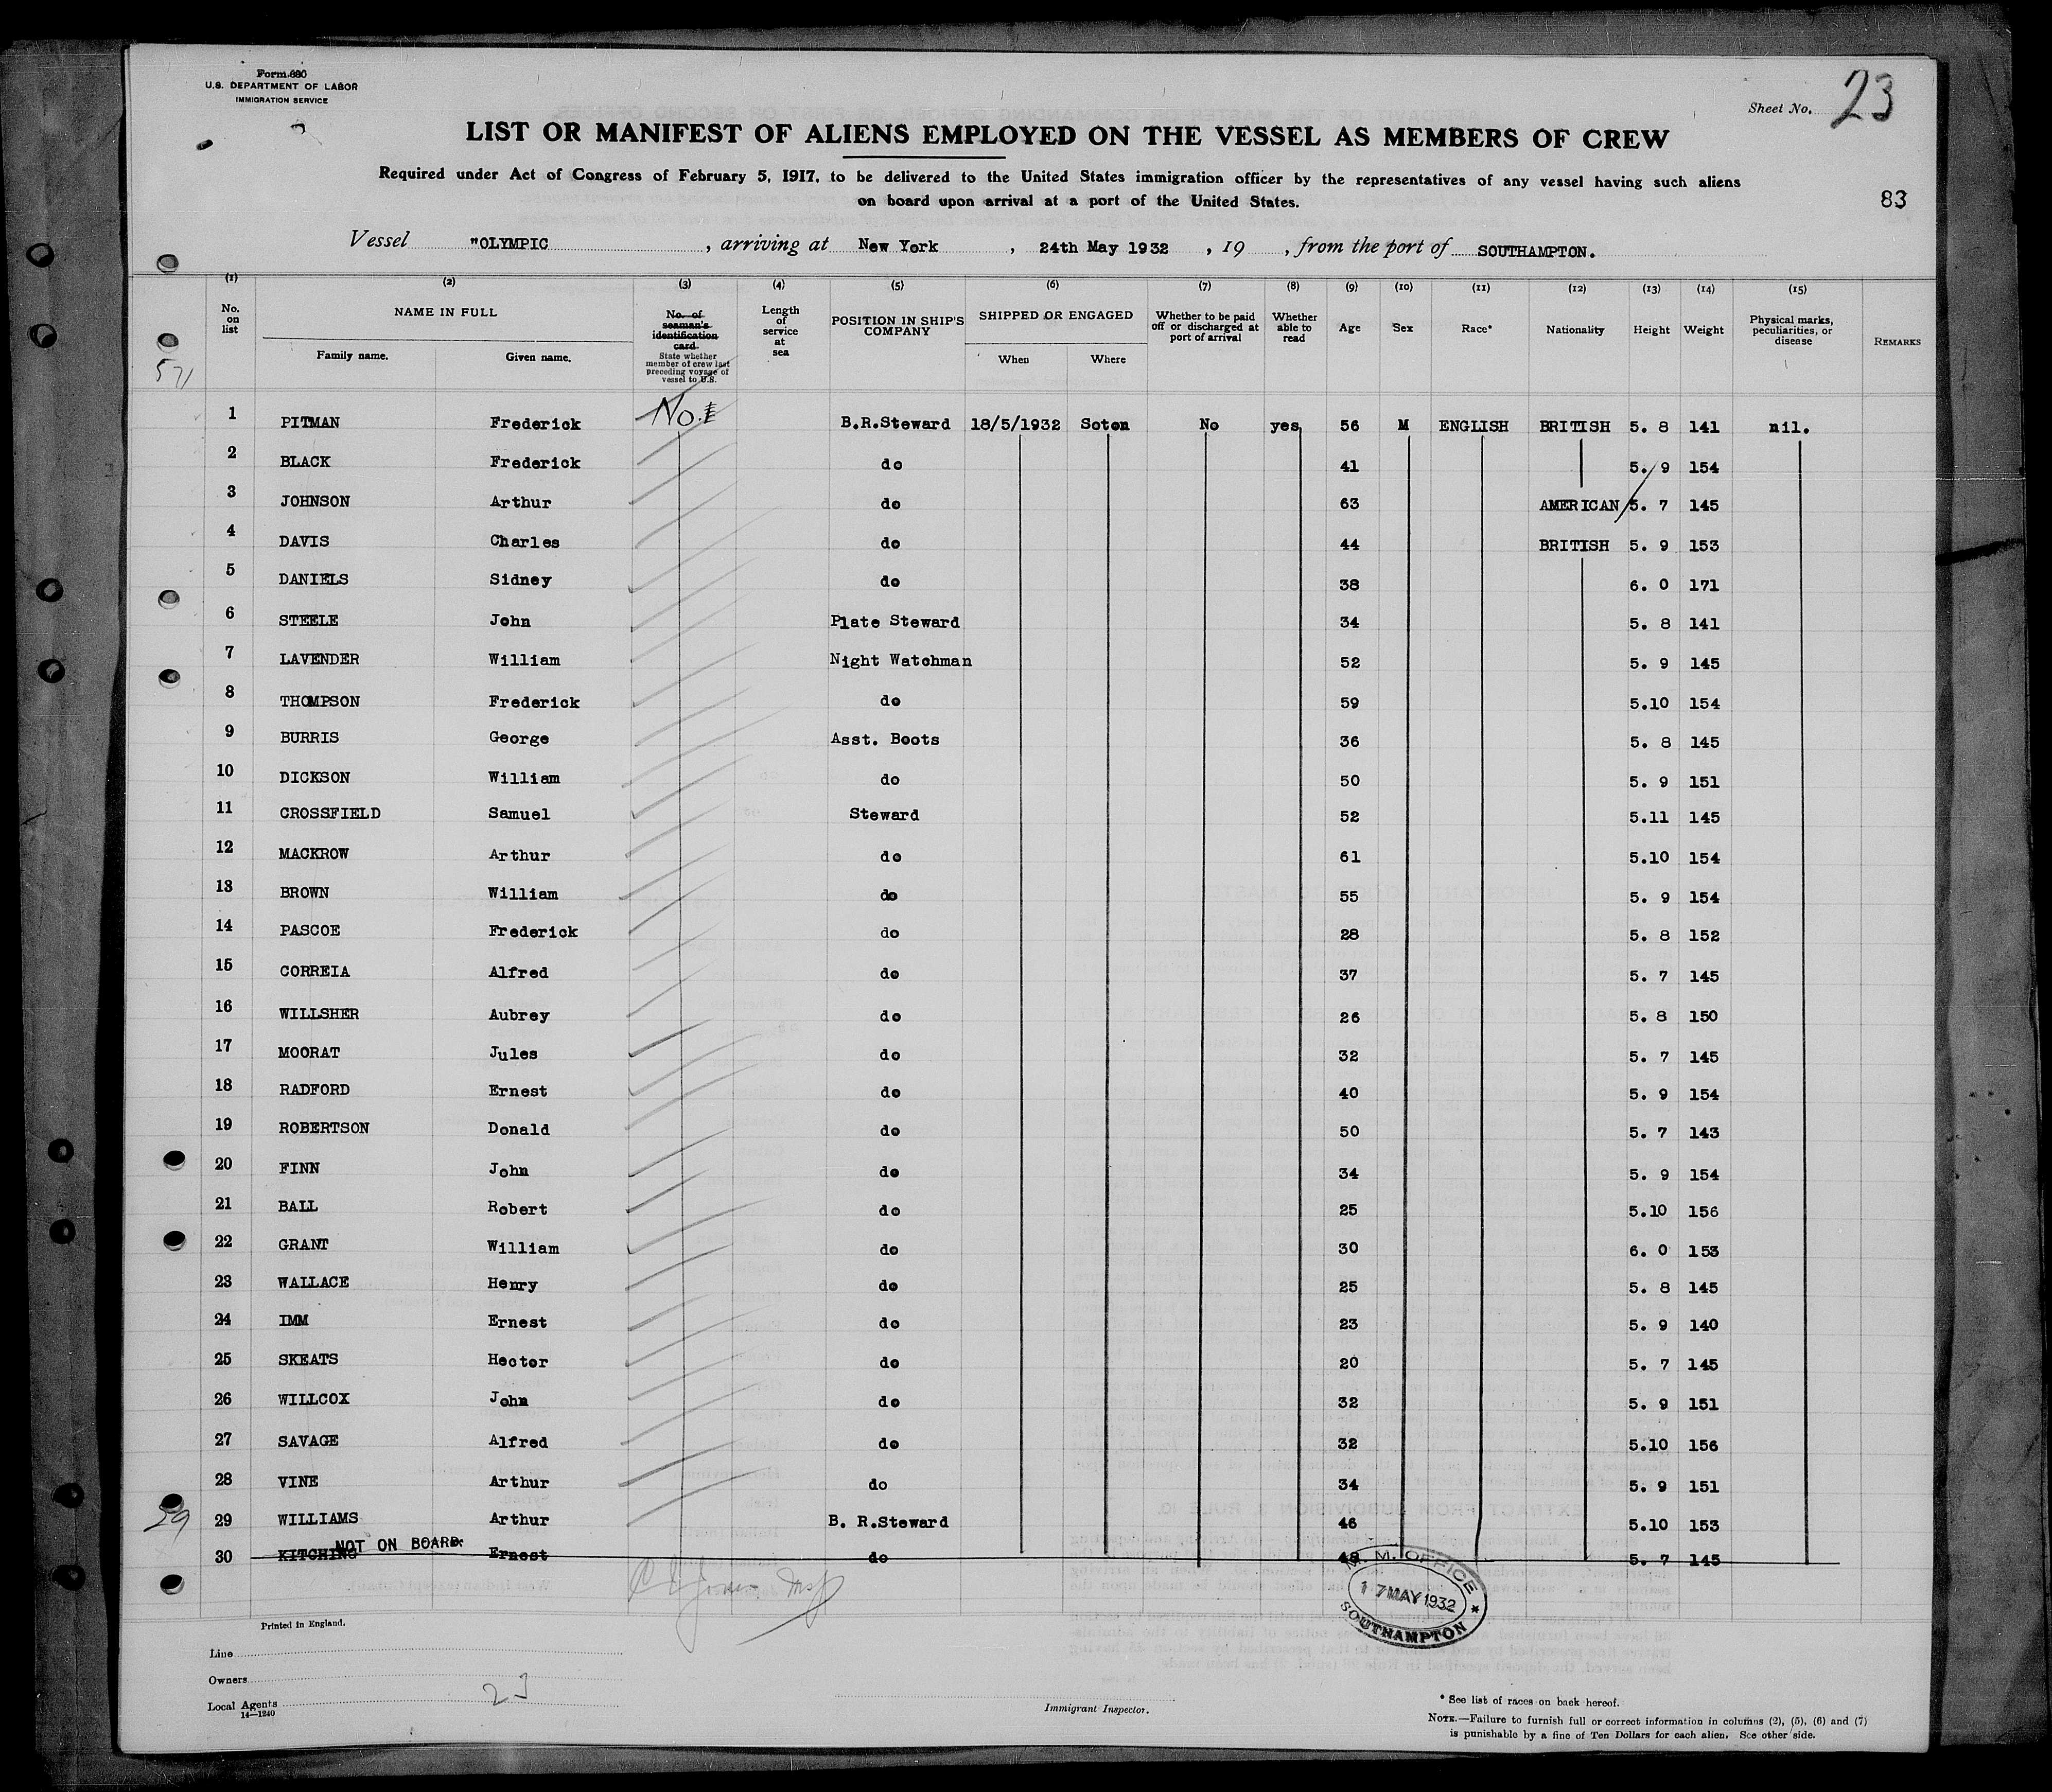 Form 680
U.S. DEPARTMENT OF LABOR
IMMIGRATION SERVICE
Sheet No. 23
LIST OR MANIFEST OF ALIENS EMPLOYED ON THE VESSEL AS MEMBERS OF CREW
Required under Act of Congress of February 5, 1917, to be delivered to the United States immigration officer by the representatives of any vessel having such aliens
on board upon arrival at a port of the United States.
83
Vessel "OLYMPIC , arriving at New York , 24th May 1932 , 19 , from the port of SOUTHAMPTON.
(1) (2) (3) (4) (5) (6) (7) (8) (9) (10) (11) (12) (13) (14) (15)
No. on list NAME IN FULL Family name. Given name. No. of seaman's identification card. State whether member of crew last preceding voyage of vessel to U.S. Length of service at sea POSITION IN SHIP'S COMPANY SHIPPED OR ENGAGED When Where Whether to be paid off or discharged at port of arrival Whether able to read Age Sex Race* Nationality Height Weight Physical marks, peculiarities, or disease REMARKS
1 PITMAN Frederick B.R.Steward 18/5/1932 Soton No yes 56 M ENGLISH BRITISH 5. 8 141 nil.
2 BLACK Frederick do 41 5. 9 154
3 JOHNSON Arthur do 63 AMERICAN 5. 7 145
4 DAVIS Charles do 44 BRITISH 5. 9 153
5 DANIELS Sidney do 38 6. 0 171
6 STEELE John Plate Steward 34 5. 8 141
7 LAVENDER William Night Watchman 52 5. 9 145
8 THOMPSON Frederick do 59 5.10 154
9 BURRIS George Asst. Boots 36 5. 8 145
10 DICKSON William do 50 5. 9 151
11 CROSSFIELD Samuel Steward 52 5.11 145
12 MACKROW Arthur do 61 5.10 154
13 BROWN William do 55 5. 9 154
14 PASCOE Frederick do 28 5. 8 152
15 CORREIA Alfred do 37 5. 7 145
16 WILLSHER Aubrey do 26 5. 8 150
17 MOORAT Jules do 32 5. 7 145
18 RADFORD Ernest do 40 5. 9 154
19 ROBERTSON Donald do 50 5. 7 143
20 FINN John do 34 5. 9 154
21 BALL Robert do 25 5.10 156
22 GRANT William do 30 6. 0 153
23 WALLACE Henry do 25 5. 8 145
24 IMM Ernest do 23 5. 9 140
25 SKEATS Hector do 20 5. 7 145
26 WILLCOX John do 32 5. 9 151
27 SAVAGE Alfred do 32 5.10 156
28 VINE Arthur do 34 5. 9 151
29 WILLIAMS Arthur B. R.Steward 46 5.10 153
NOT ON BOARD.
30 KITCHING Ernest do 48 5. 7 145
M. M. OFFICE
17 MAY 1932
SOUTHAMPTON
Printed in England.
Line
Owners
Local Agents
14—1240
23
Immigrant Inspector.
* See list of races on back hereof.
NOTE.—Failure to furnish full or correct information in columns (2), (5), (6) and (7)
is punishable by a fine of Ten Dollars for each alien. See other side.